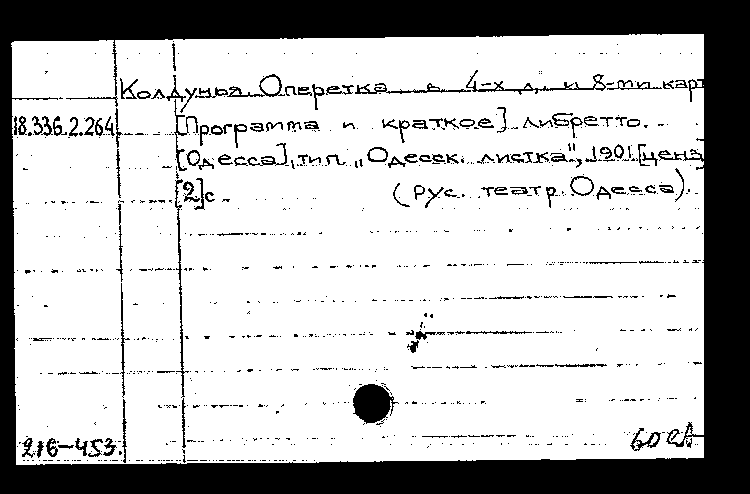 Колдунья. Оперетка в 4-х д. и 8-ми карт
18.336.2.264 [Программа и краткое] либретто.
[Одесса], тип. „Одесск. листка", 1901 [ценз]
[2]с. (Рус. театр. Одесса).
216-453.